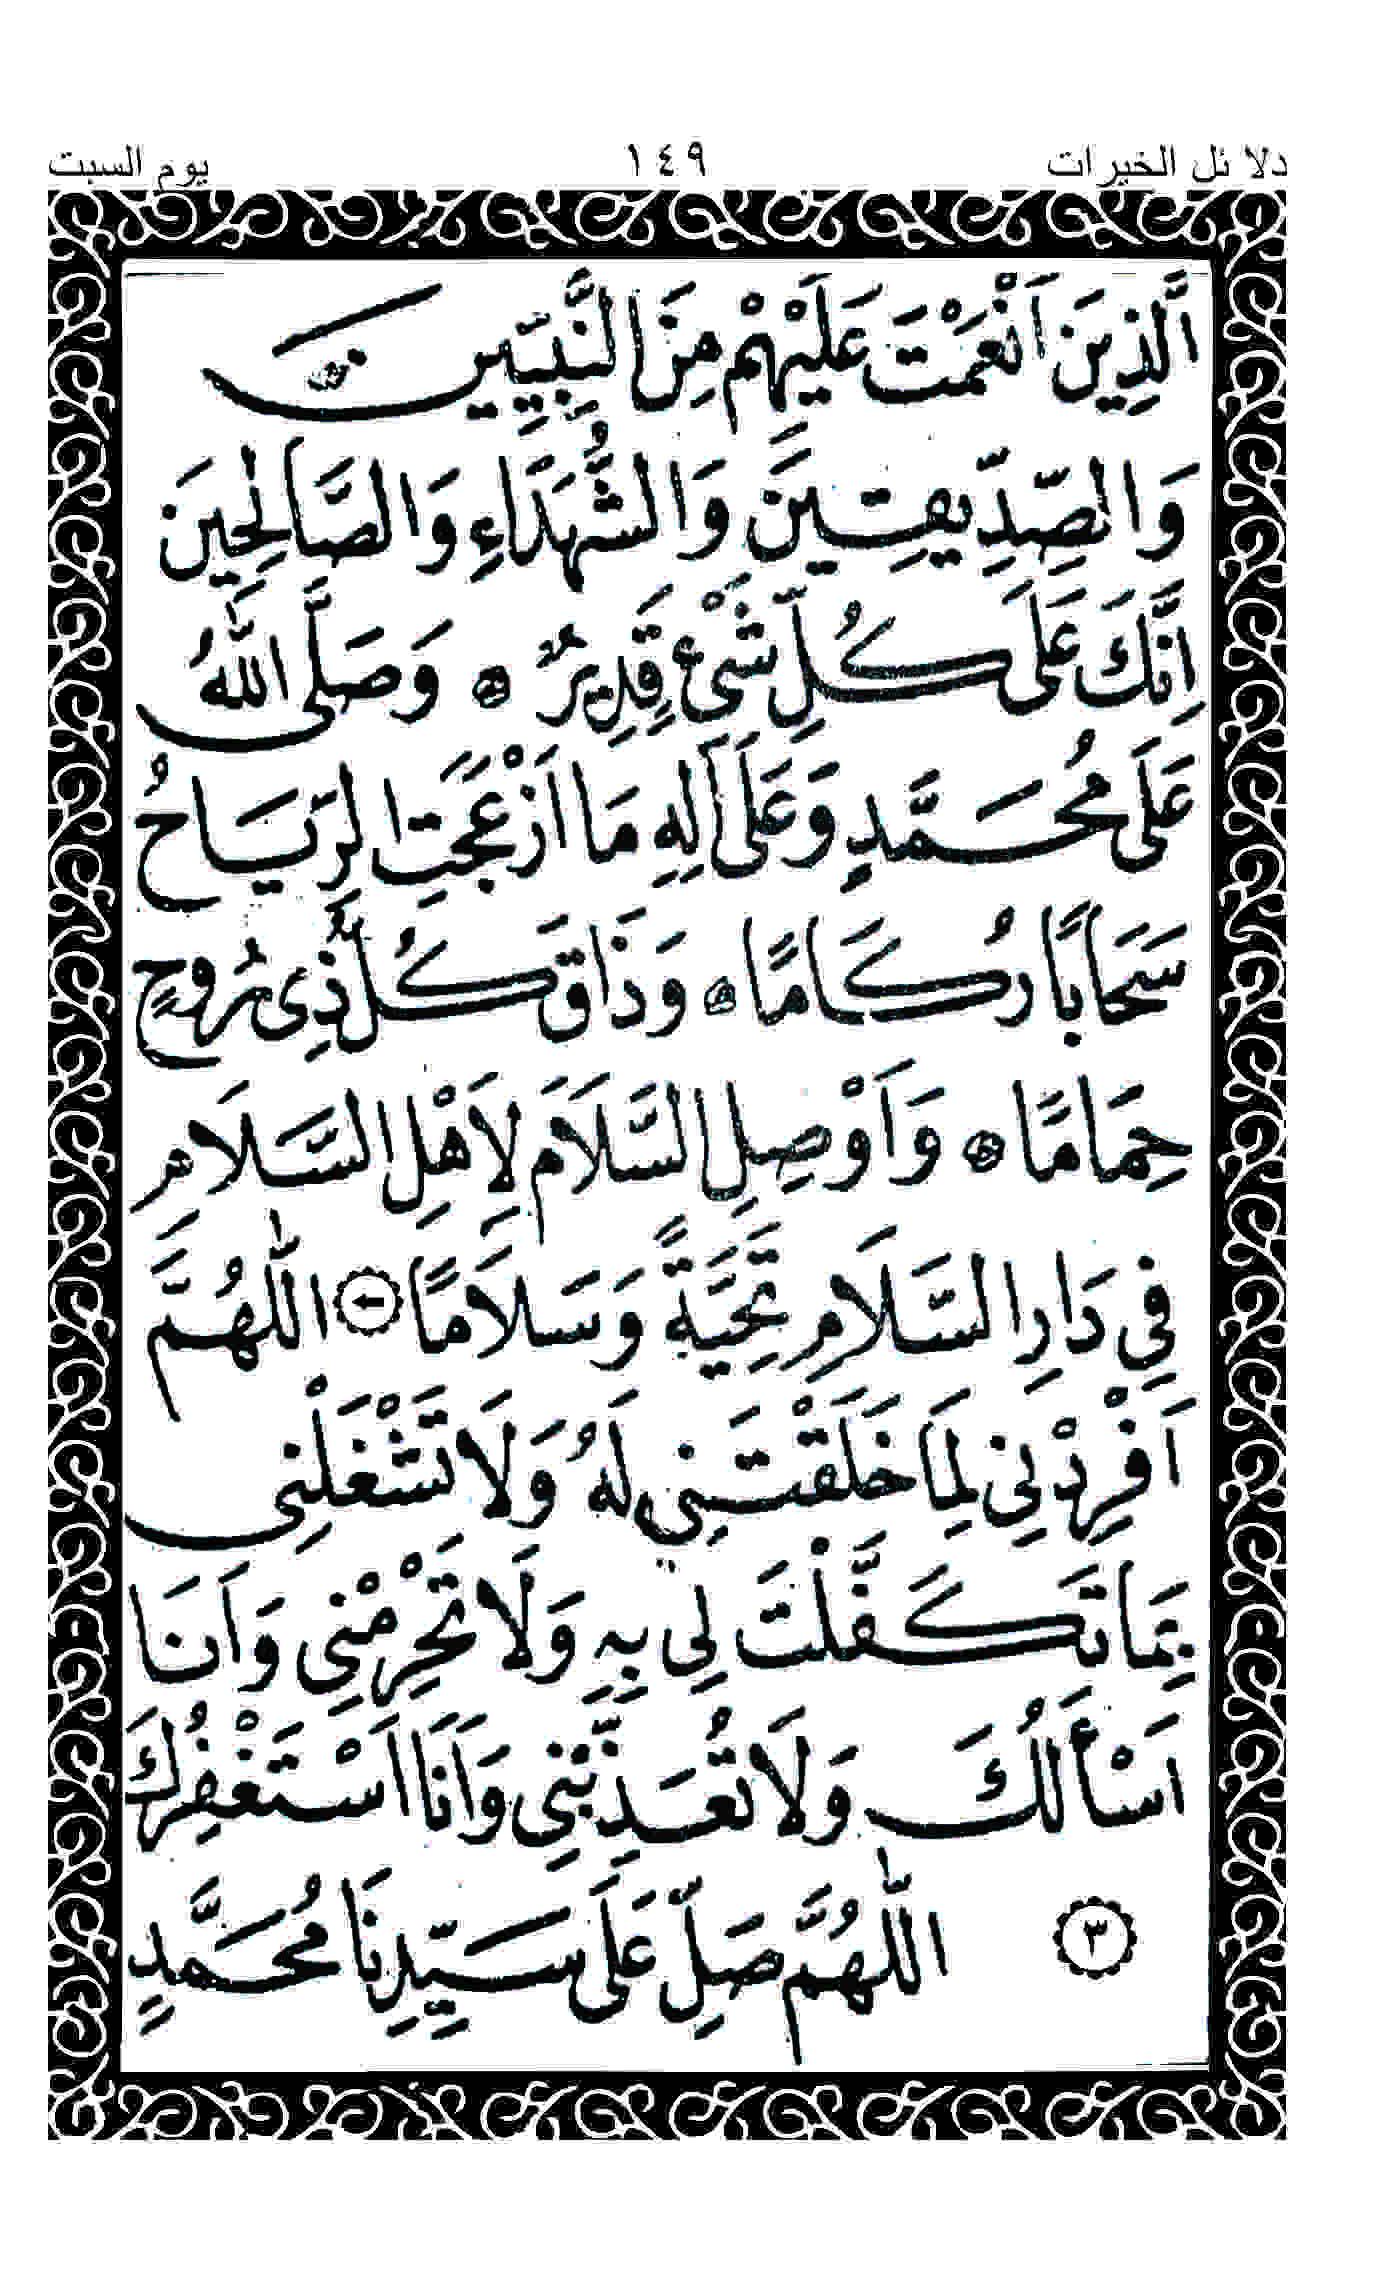 دلائل الخيرات ١٤٩ يوم السبت
اَلَّذِينَ اَنْعَمْتَ عَلَيْهِمْ مِنَ النَّبِيِّينَ
وَالصِّدِّيقِينَ وَالشُّهَدَاءِ وَالصَّالِحِينَ
اِنَّكَ عَلَى كُلِّ شَىْءٍ قَدِيرٌ وَصَلَّى اللّٰهُ
عَلَى مُحَمَّدٍ وَعَلَى آلِهِ مَا اَزْعَجَتِ الرِّيَاحُ
سَحَابًا رُكَامًا وَذَاقَ كُلُّ ذِى رُوحٍ
حِمَامًا وَاَوْصِلِ السَّلَامَ لِاَهْلِ السَّلَامِ
فِى دَارِ السَّلَامِ تَحِيَّةً وَسَلَامًا اَللّٰهُمَّ
اَفْرِدْنِى لِمَا خَلَقْتَنِى لَهُ وَلَا تَشْغَلْنِى
بِمَا تَكَفَّلْتَ لِى بِهِ وَلَا تَحْرِمْنِى وَاَنَا
اَسْأَلُكَ وَلَا تُعَذِّبْنِى وَاَنَا اَسْتَغْفِرُكَ
٣ اَللّٰهُمَّ صَلِّ عَلَى سَيِّدِنَا مُحَمَّدٍ